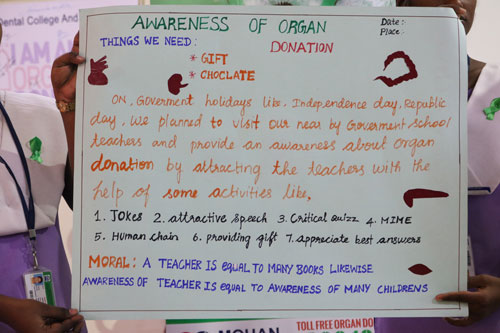 Dental College And
I AM AN
ORGAN
AWARENESS OF ORGAN
DONATION
Date:
Place:
THINGS WE NEED:
* GIFT
* CHOCLATE
ON, Goverment holidays like, Independence day, Republic
day, We planned to visit our near by Goverment School
teachers and provide an awareness about organ
donation by attracting the teachers with the
help of some activities like,
1. Jokes 2. attractive speech 3. Critical quizz 4. MIME
5. Human chain 6. providing gift 7. appreciate best answers
MORAL: A TEACHER IS EQUAL TO MANY BOOKS LIKEWISE
AWARENESS OF TEACHER IS EQUAL TO AWARENESS OF MANY CHILDRENS
MOHAN
TOLL FREE ORGAN DO